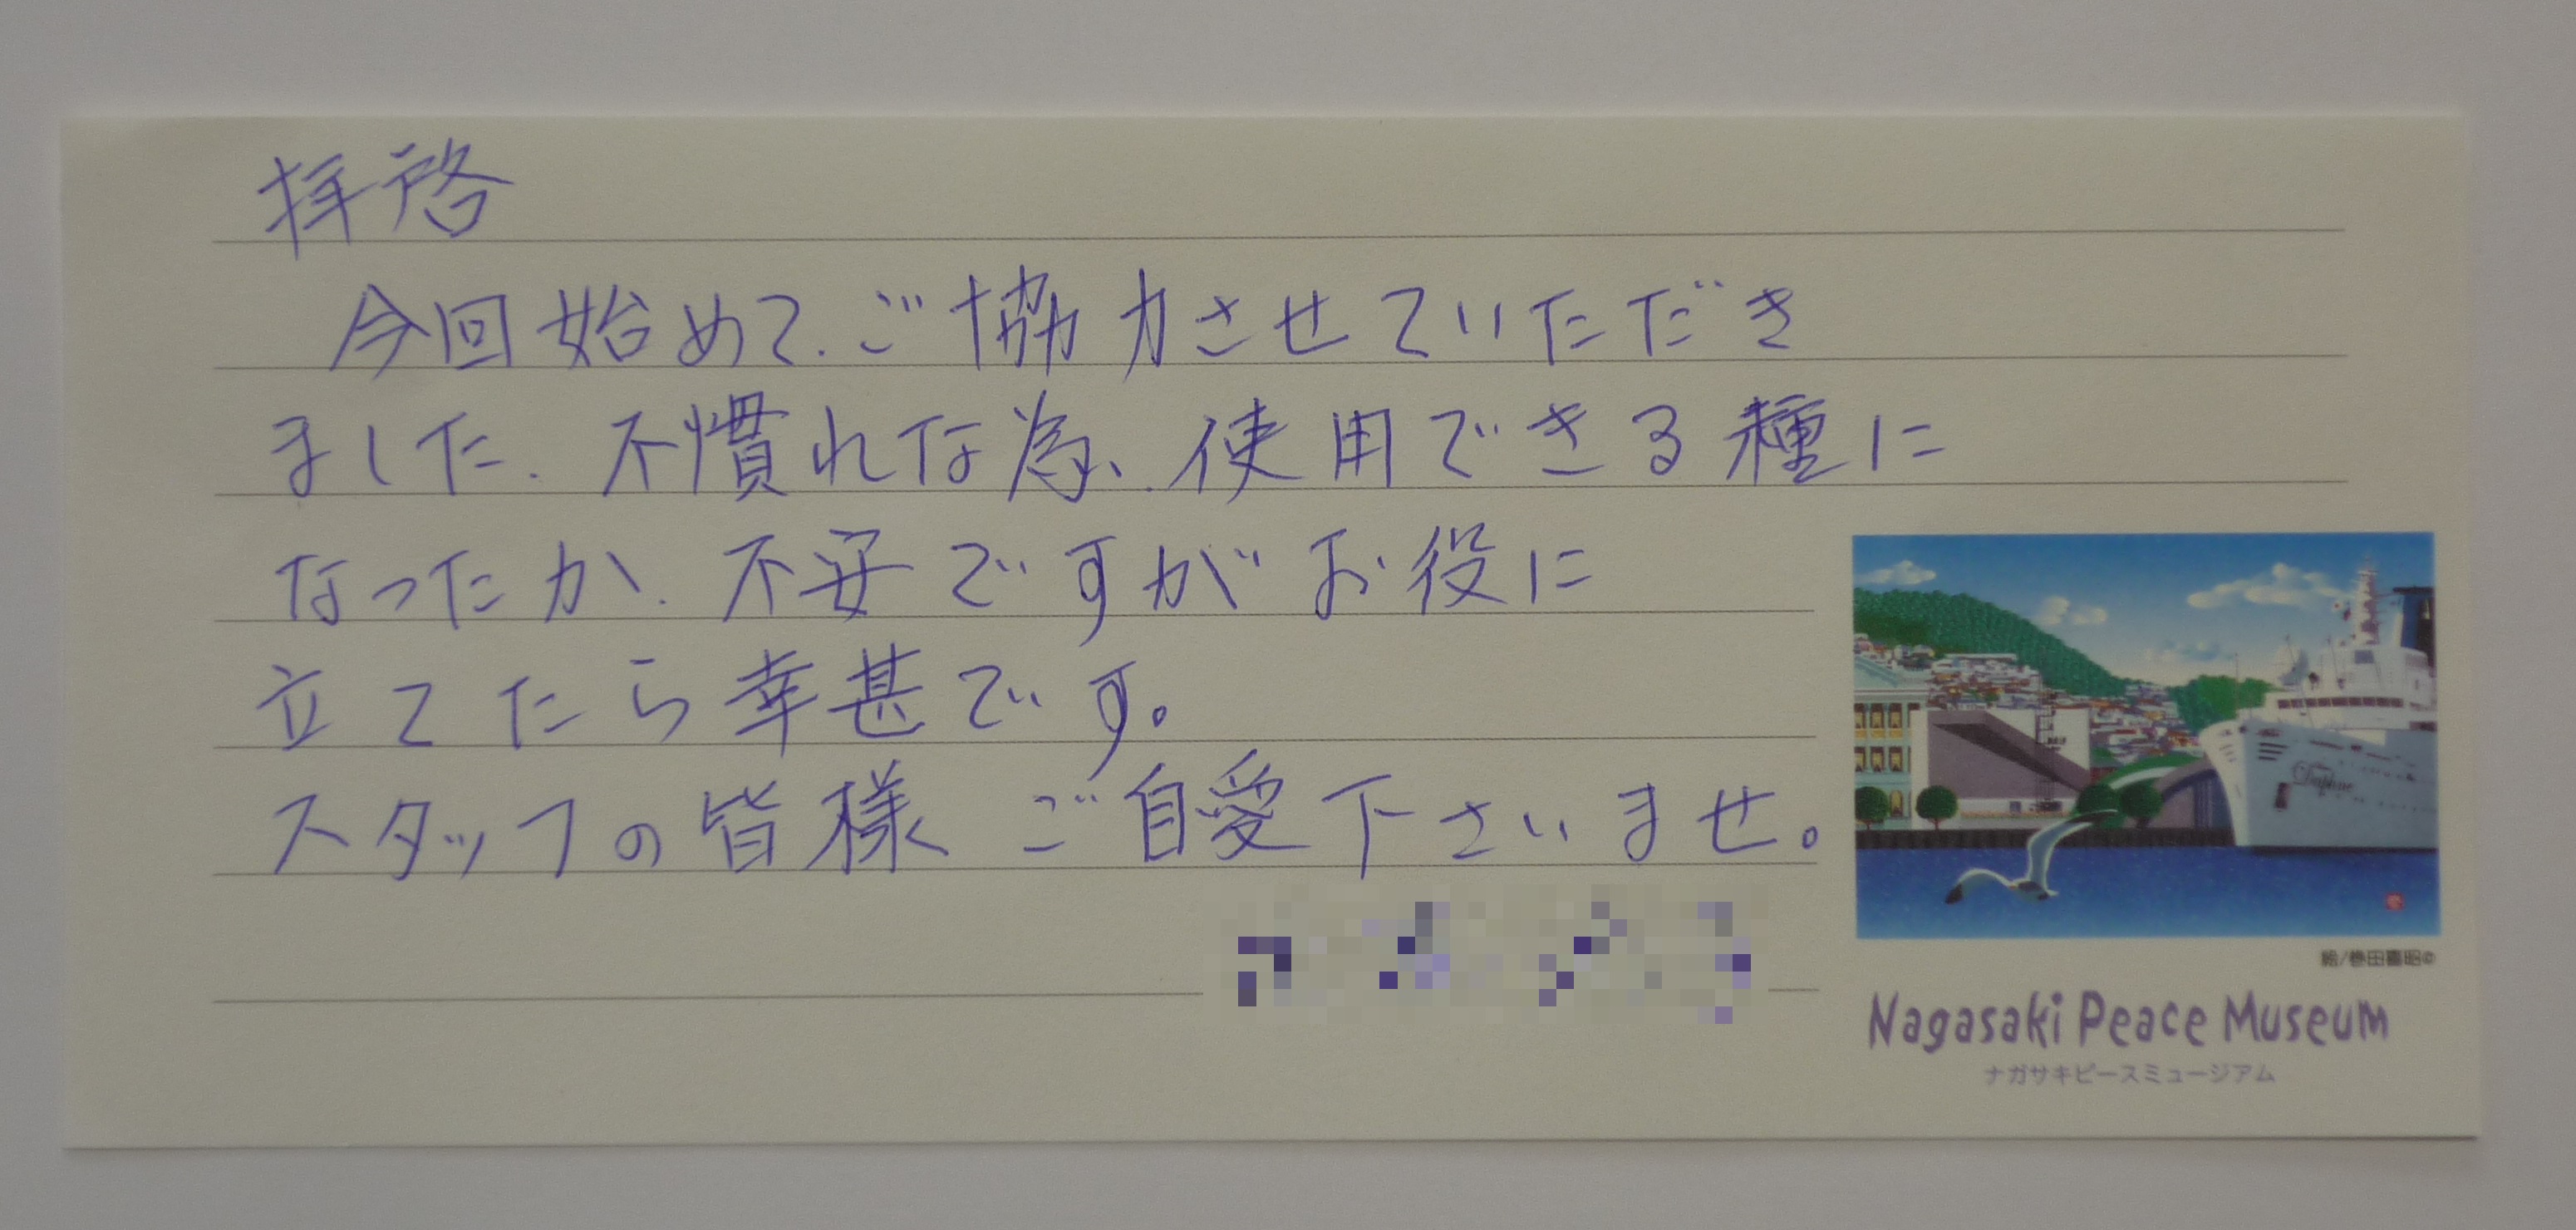 拝啓
今回始めて、ご協力させていただき
ました。不慣れな為、使用できる種に
なったか、不安ですがお役に
立てたら幸甚です。
スタッフの皆様 ご自愛下さいませ。
Daphne
絵/巻田喜昭©
Nagasaki Peace Museum
ナガサキピースミュージアム